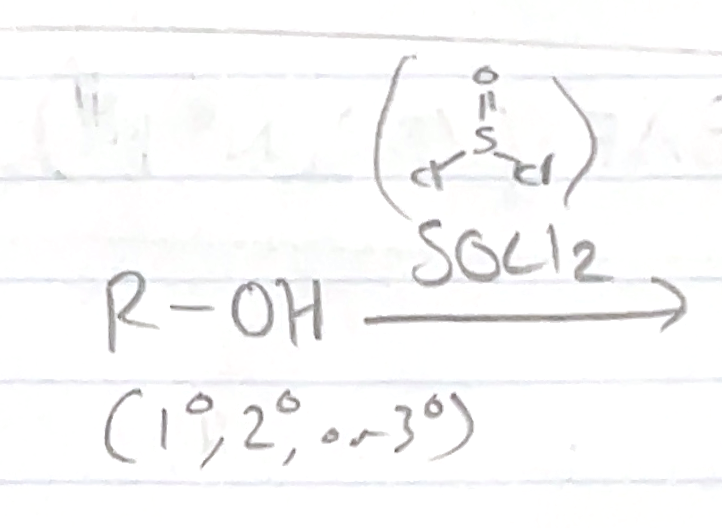 O
S
Cl Cl
SOCl2
R-OH
(1°, 2°, or 3°)